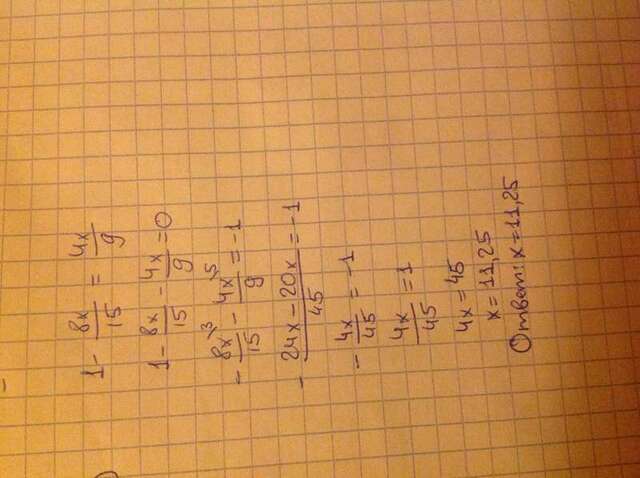 1 - 8x/15 = 4x/9
1 - 8x/15 - 4x/9 = 0
- 8x\3/15 - 4x\5/9 = -1
- 24x - 20x/45 = -1
- 4x/45 = -1
4x/45 = 1
4x = 45
x = 11,25
Ответ: x = 11,25